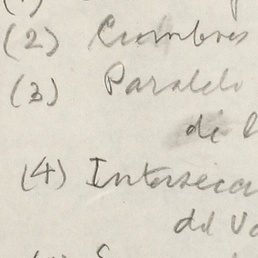 (1)
(2) Cumbres
(3) Paralelo
de l
(4) Intersecci
del Vo